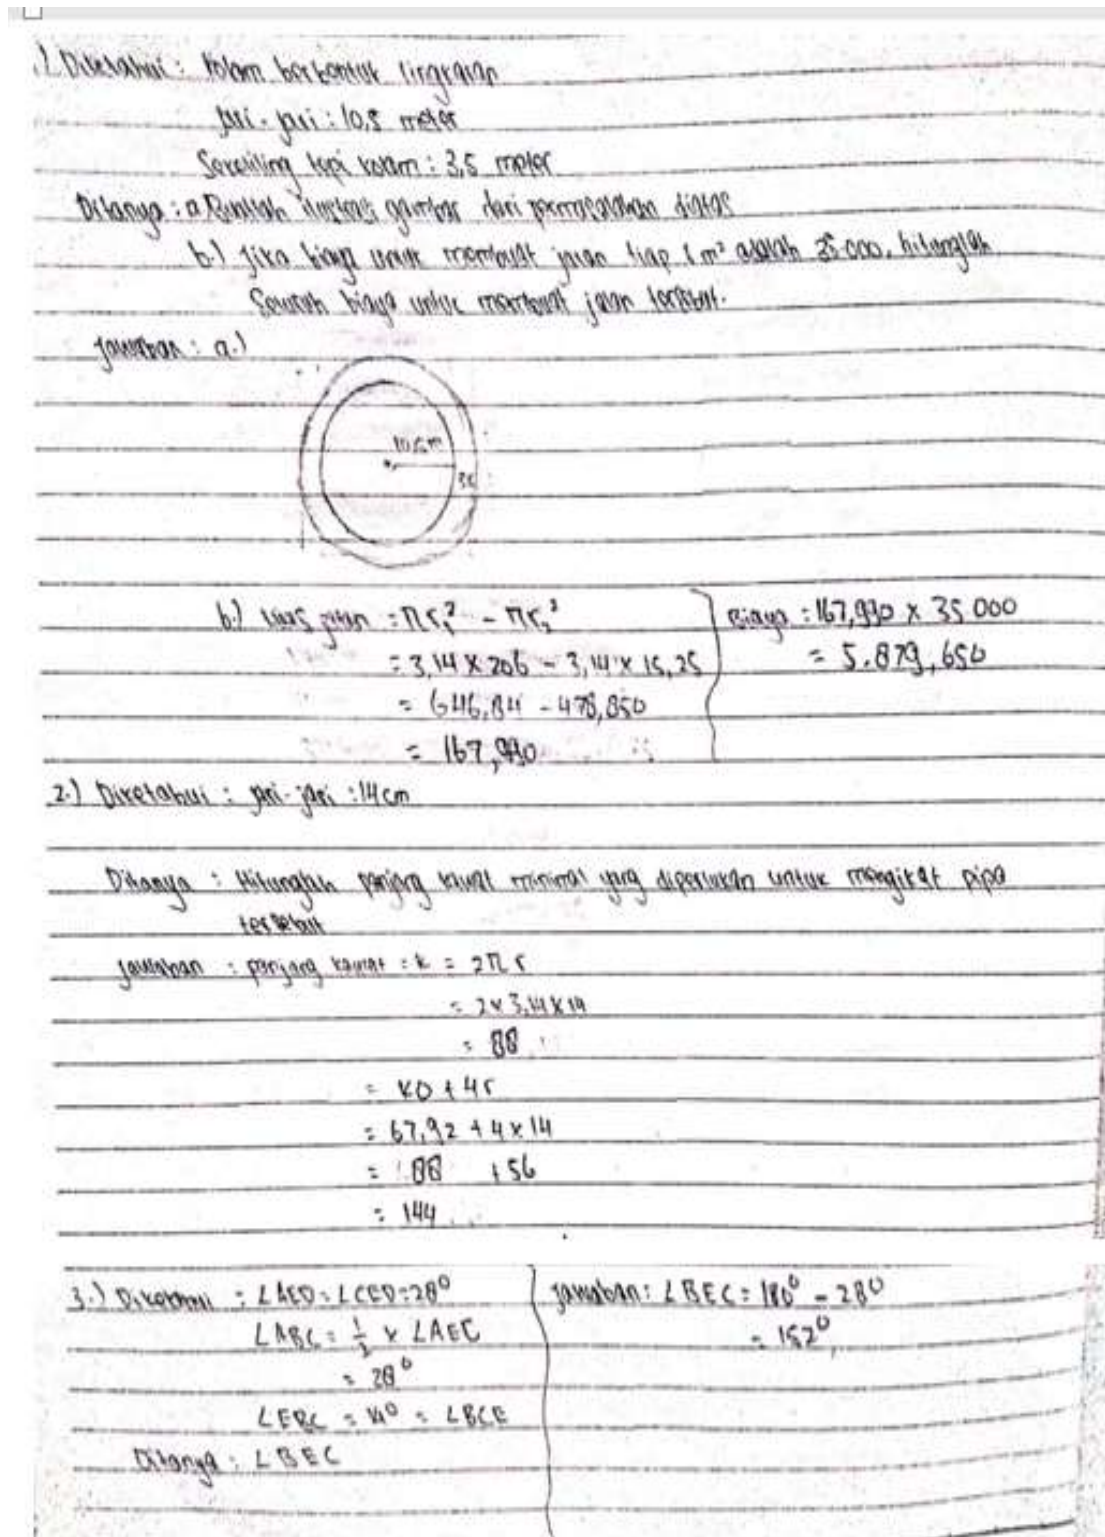 1.) Diketahui : kolam berbentuk lingkaran
jari-jari : 10,5 meter
Sekeliling tepi kolam : 3,5 meter
Ditanya : a.) Buatlah ilustrasi gambar dari permasalahan diatas
b.) Jika biaya untuk membuat jalan tiap 1 m² adalah 35 000, hitunglah
Seluruh biaya untuk membuat jalan tersebut.
Jawaban : a.)
10,5 m
3,5
b.) Luas jalan = πr₁² - πr₂²
= 3,14 x 206 - 3,14 x 15,25
= 646,84 - 478,850
= 167,990
Biaya = 167,990 x 35 000
= 5.879,650
2.) Diketahui : jari-jari : 14 cm
Ditanya : Hitunglah panjang kawat minimal yang diperlukan untuk mengikat pipa
tersebut
Jawaban : panjang kawat = k = 2πr
= 2 x 3,14 x 14
= 88
= kO + 4r
= 67,92 + 4 x 14
= 88 + 56
= 144
3.) Diketahui : ∠AED = ∠CED = 28°
∠ABC = 1/2 x ∠AEC
= 28°
∠EBC = 14° = ∠BCE
Ditanya : ∠BEC
Jawaban : ∠BEC = 180° - 280
= 152°